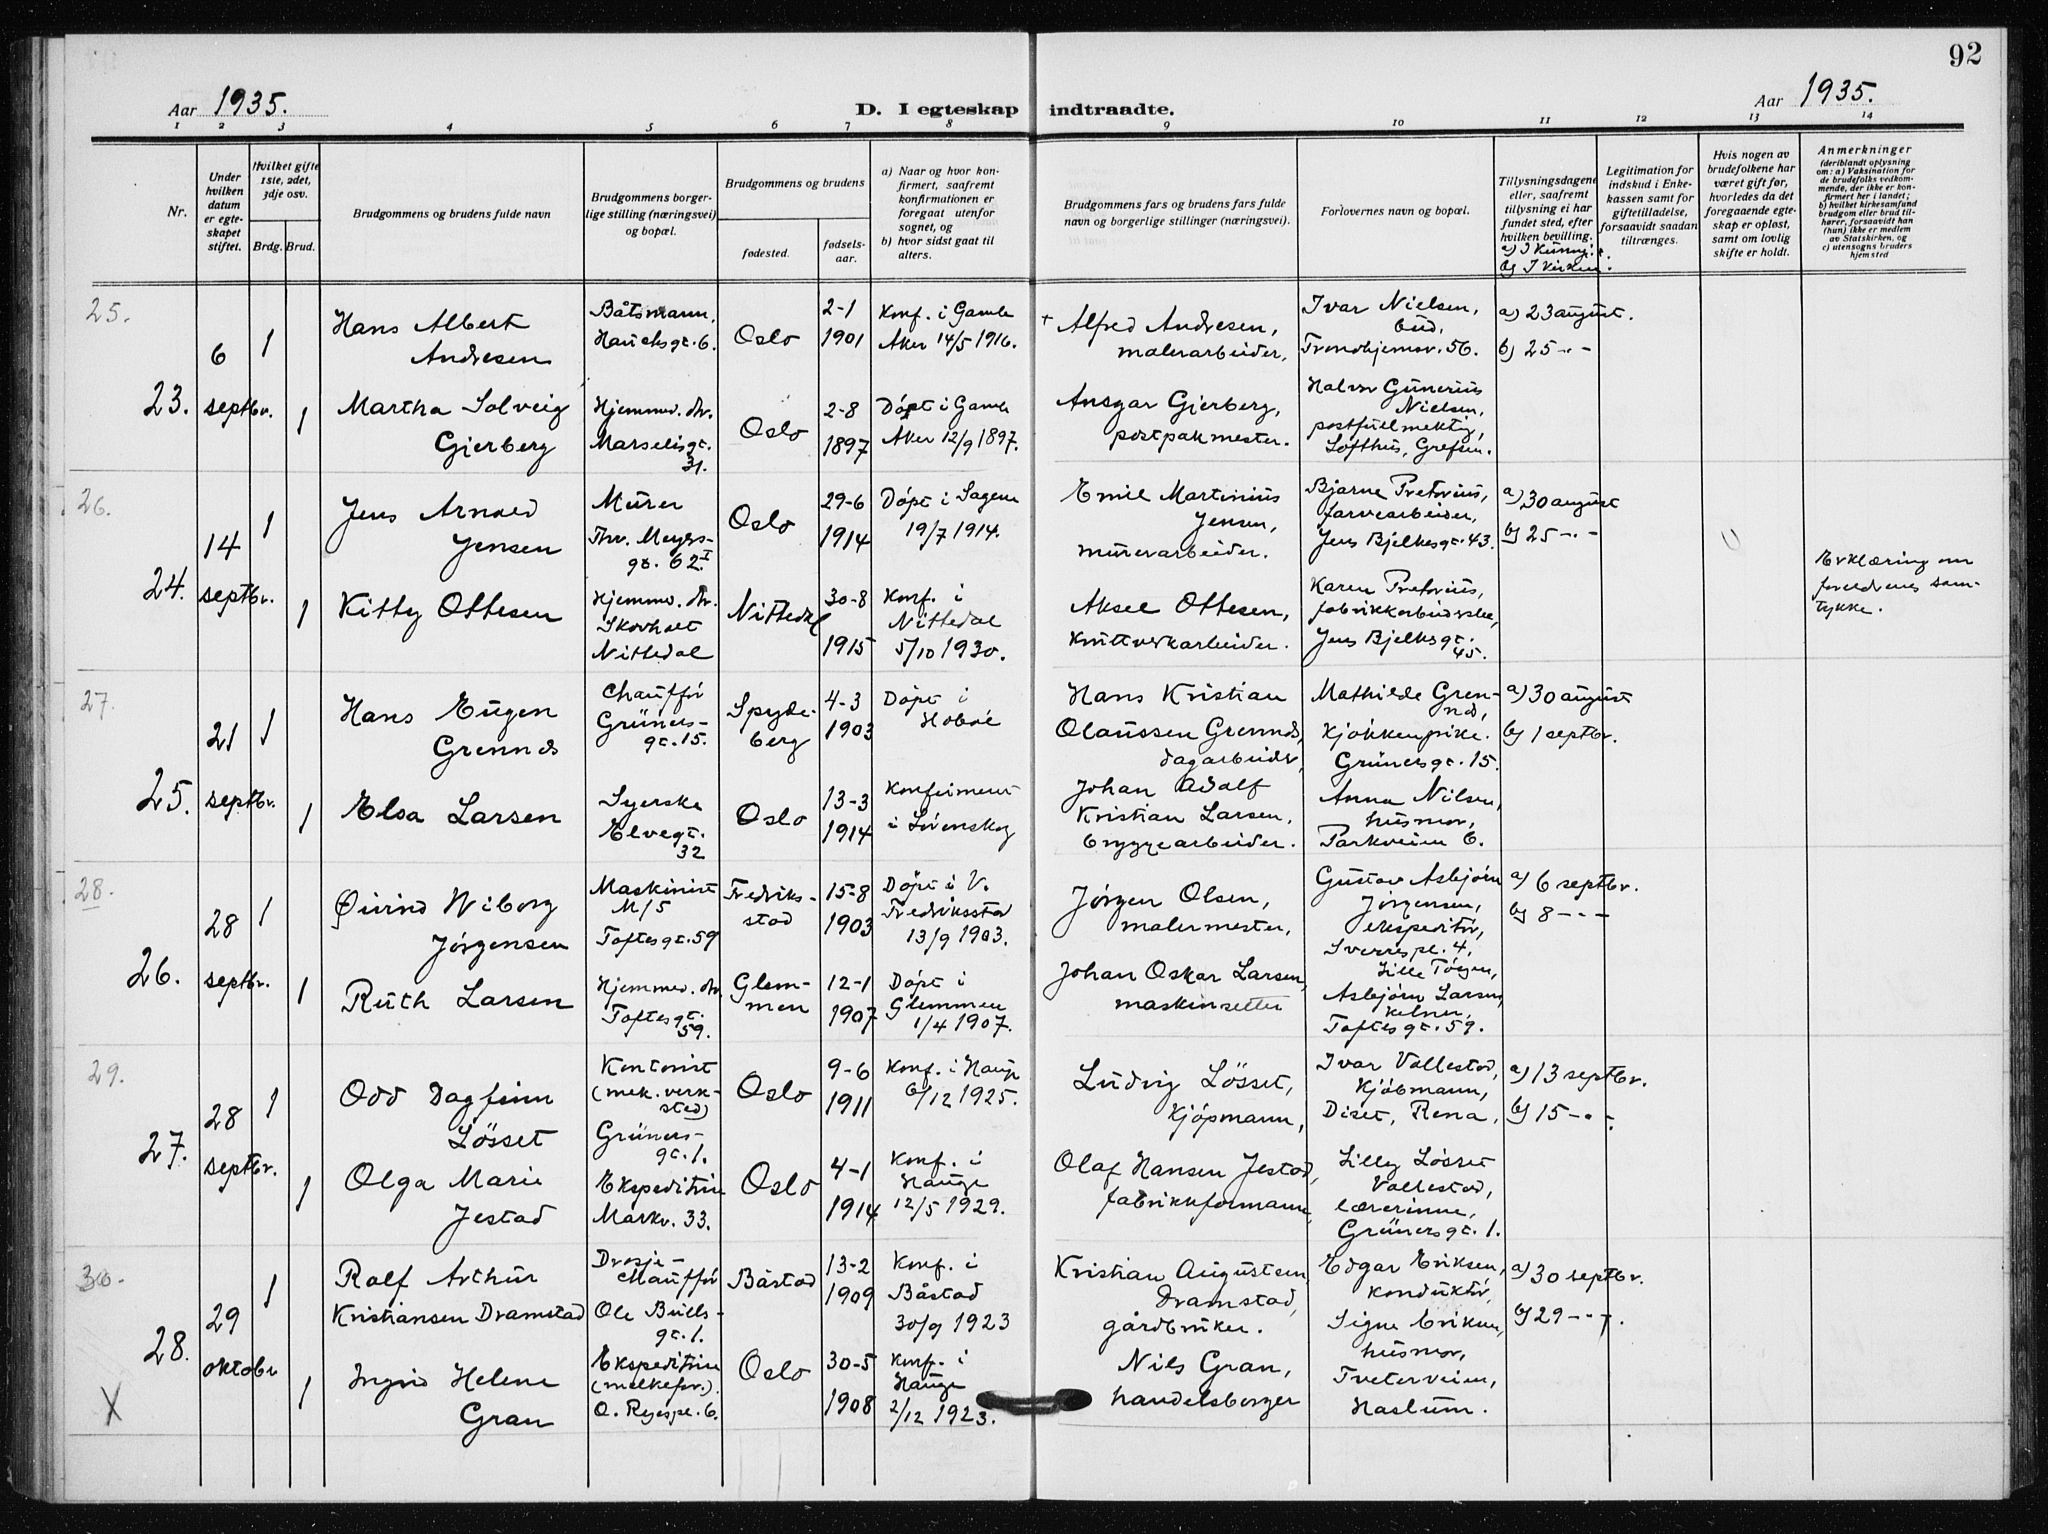 92
Aar 1935.
D. I egteskap indtraadte.
Aar 1935.
1 2 3 4 5 6 7 8 9 10 11 12 13 14
Nr.
Under
hvilken
datum
er egte-
skapet
stiftet.
Hvilket gifte
1ste, 2det,
3dje osv.
Brdg. Brud.
Brudgommens og brudens fulde navn
Brudgommens borger-
lige stilling (næringsvei)
og bopæl.
Brudgommens og brudens
fødested.
fødsels-
aar.
a) Naar og hvor kon-
firmert, saafremt
konfirmationen er
foregaat utenfor
sognet, og
b) hvor sidst gaat til
alters.
Brudgommens fars og brudens fars fulde
navn og borgerlige stillinger (næringsvei).
Forlovernes navn og bopæl.
Tillysningsdagene
eller, saafremt
tillysning ei har
fundet sted, efter
hvilken bevilling.
b) I kirken.
Legitimation for
indskud i Enke-
kassen samt for
giftetilladelse,
forsaavidt saadan
tiltrænges.
Hvis nogen av
brudefolkene har
været gift før,
hvorledes da det
foregaaende egte-
skap er opløst,
samt om lovlig
skifte er holdt.
Anmerkninger
(deriblandt oplysning
om: a) Vaksination for
de brudefolks vedkom-
mende, der ikke er kon-
firmert her i landet;
b) hvilket kirkesamfund
brudgom eller brud til-
hører, forsaavidt han
(hun) ikke er medlem
av Statskirken, og
c) utensogns bruders
hjemsted
25.
23.
6
septbr.
1
Hans Albert
Andresen
Båtsmann,
Hauchsgt. 6.
Oslo
2-1
1901
Konf. i Gamle
Aker 14/5 1916.
+ Alfred Andresen,
malerarbeider,
Ivar Nielsen,
bud,
Trondhjemsv. 56.
a) 23 august.
b) 25 - " -
1
Martha Solveig
Gjerberg
Hjemmev. dtr.
Marselisgt.
31.
Oslo
2-8
1897
Døpt i Gamle
Aker 12/9 1897.
Ansgar Gjerberg,
postpakmester.
Halvor Gunerius
Nielsen,
postfullmektig,
Lofthus, Grefsen.
26.
24.
14
septbr.
1
Jens Arnold
Jensen
Murer
Thv. Meyers-
gt. 62 I
Oslo
29-6
1914
Døpt i Sagene
19/7 1914.
Emil Martinius
Jensen,
murerarbeider.
Bjarne Pretorius,
farvearbeider,
Jens Bjelkesgt. 43.
a) 30 august
b) 25 - " -
1
Kitty Ottesen
Hjemmev. dtr.
Skovholt
Nittedal
Nittedal
30-8
1915
Konf. i
Nittedal
5/10 1930.
Aksel Ottesen,
Kruttverkarbeider.
Karen Pretorius,
fabrikkarbeiderske,
Jens Bjelkesgt.
45.
Erklæring om
foreldrenes sam-
tykke.
27.
25.
21
septbr.
1
Hans Eugen
Grennes
Chauffør
Grüners-
gt. 15.
Spyde-
berg
4-3
1903
Døpt i
Hobøl
Hans Kristian
Olaussen Grennes,
dagarbeider,
Mathilde Gren-
nes,
Kjøkkenpike.
Grünersgt. 15.
a) 30 august
b) 1 septbr.
1
Elsa Larsen
Syerske
Elvegt.
32
Oslo
13-3
1914
Konfirmert
i Lovenskog
Johan Adolf
Kristian Larsen,
bryggearbeider.
Anna Nilsen,
husmor,
Parkveien 6.
28.
26.
28
septbr.
1
Øivind Wiborg
Jørgensen
Maskinist
M/S
Toftesgt. 59
Fredriks-
stad
15-8
1903
Døpt i V.
Fredriksstad
13/9 1903.
Jørgen Olsen,
malermester,
Gustav Asbjørn
Jørgensen,
ekspeditør,
Sverrespl. 4,
Lille Tøyen,
a) 6 septbr.
b) 8 - " -
1
Ruth Larsen
Hjemmev. dtr.
Toftesgt.
59.
Glem-
men
12-1
1907
Døpt i
Glemmen
1/4 1907.
Johan Oskar Larsen,
maskinsetter
Asbjørn Larsen,
kelner,
Toftesgt. 59.
29.
27.
28
septbr.
1
Odd Dagfinn
Løsset
Kontorist
(mek. verk-
sted)
Grüners-
gt. 1.
Oslo
9-6
1911
Konf. i Hauge
6/12 1925.
Ludvig Løsset,
Kjøpmann,
Ivar Vollestad,
Kjøbmann,
Diset, Rena,
a) 13 septbr.
b) 15 - " -
1
Olga Marie
Jestad
Ekspeditrise
Markv. 33.
Oslo
4-1
1914
Konf. i
Hauge
12/5 1929.
Olaf Hansen Jestad,
fabrikkformann,
Lilly Løsset
Vollestad,
lærerinne,
Grünersgt. 1.
30.
28.
X
29
oktobr
1
Ralf Arthur
Kristiansen Dramstad
Drosje-
chauffør
Ole Bulls-
gt. 1.
Båstad
13-2
1909
Konf. i
Båstad
30/9 1923
Kristian Augustsen
Dramstad,
gårdbruker.
Edgar Eriksen,
konduktør,
a) 30 septbr.
b) 29 - " -
1
Ingrid Helene
Gran
Ekspeditrise
(melkefor.).
O. Ryespl. 6.
Oslo
30-5
1908
Konf. i
Hauge
2/12 1923.
Nils Gran,
handelsborger
Signe Eriksen,
husmor,
Tveterveien,
Haslum.